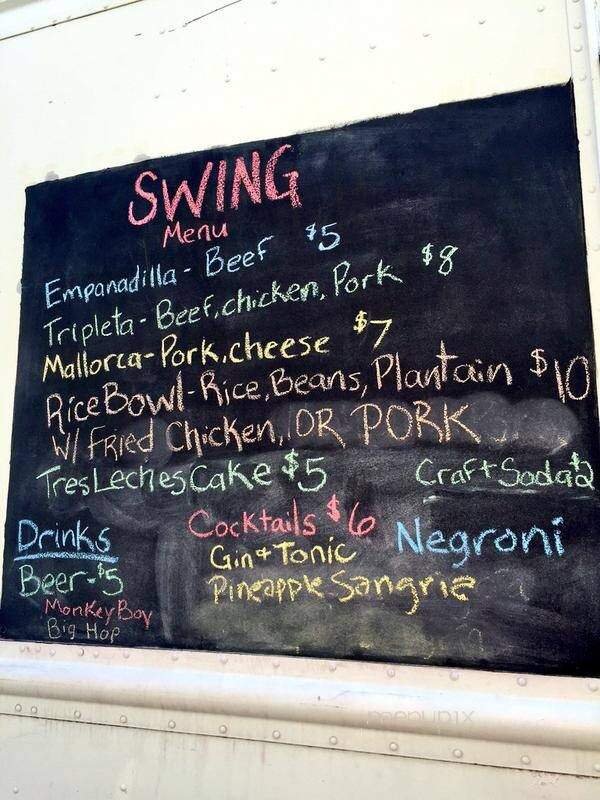 SWING
Menu
Empanadilla - Beef $5
Tripleta - Beef, chicken, Pork $8
Mallorca - Pork, cheese $7
Rice Bowl - Rice, Beans, Plantain $10
W/ Fried Chicken, OR PORK
Tres Leches Cake $5
Craft Soda $2
Drinks
Beer - $5
Monkey Boy
Big Hop
Cocktails $6
Gin + Tonic
Pineapple Sangria
Negroni